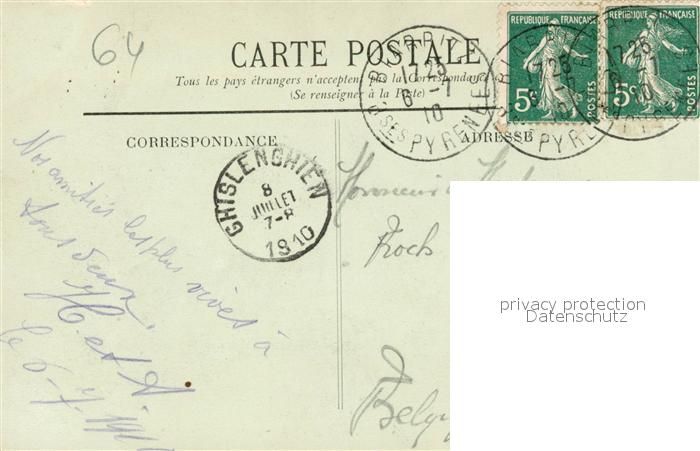 64
CARTE POSTALE
Tous les pays étrangers n'acceptent pas la Correspondance
(Se renseigner à la Poste)
CORRESPONDANCE
ADRESSE
17 25
6 - 7
10
PYRENEES
REPUBLIQUE FRANÇAISE
5c
POSTES
REPUBLIQUE FRANÇAISE
5c
POSTES
GHISLENGHIEN
8
JUILLET
7-8
1910
Nos amitiés les plus vives à
tous deux.
H et
le 6-7-
Monsieur
Roch
Belg
privacy protection
Datenschutz